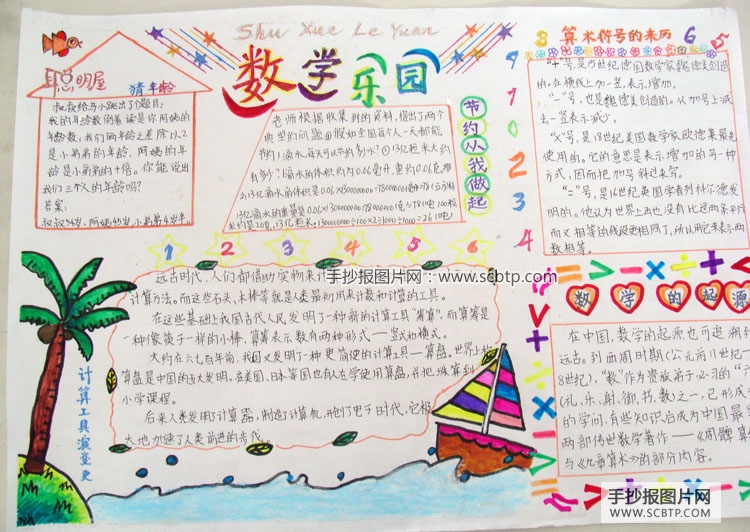 Shu Xue Le Yuan
数学乐园
聪明屋
猜年龄
叔叔给马小跳出了个题目：
我的年龄数倒着读是你阿姨的
年龄数，我们两年龄之差除以2
是小弟弟的年龄，阿姨的年
龄是小弟弟的十倍。你能说出
我们三个人的年龄吗？
答案：
叔叔54岁，阿姨45岁，小弟弟4岁半。
老师根据收集到的资料，提出了两个
典型的问题：①假如全国每个人一天都能
节约1滴水，每天可以节约多少水？②13亿粒米大约
有多少？1滴水的体积约为0.06毫升，重约0.06克，那
么13亿滴水的体积是
13亿滴水的重量是
节约从我做起
9
7
1
0
2
3
4
8
算术符号的来历
6
5
“+”号，是15世纪德国数学家魏德美创造
的。在横线上加一竖，表示增加。
“-”号，也是魏德美创造的。从加号上减
去一竖表示减少。
“×”号，是18世纪美国数学家欧德莱最先
使用的。它的意思是表示增加的另一种
方式，因而把加号斜过来写。
“=”号，是16世纪英国学者列科尔德发
明的。他认为世界上再也没有比这两条平行
而又相等的线段更相同了，所以用它来表示两
数相等。
1 2 3 4 5 6
远古时代，人们都借助实物来计
计算方法。而这些石头、木棒等就是人类最初用来计数和计算的工具。
在这些基础上我国古代人民发明了一种新的计算工具“算筹”，而算筹是
一种像筷子一样的小棒，算筹表示数有两种形式——竖式和横式。
大约在六七百年前，我国又发明了一种更简便的计算工具——算盘。世界上
算盘是中国的五大发明。在美国、日本等国也有人在学使用算盘，并把珠算列
小学课程。
后来人类发明了计算器，制造了计算机
大地加速了人类前进的步伐。
计算工具演变史
手抄报图片网：www.scbtp.com
= > - × ÷ +
数学的起源
在中国，数学的起源也可追溯到
远古。到西周时期(公元前11世纪—
8世纪)，“数”作为贵族弟子必习的“六
(礼、乐、射、御、书、数)之一，已形成
的学问，有些知识后成为中国最
两部传世数学著作——《周髀算
与《九章算术》的部分内容。
手抄报图片网
WWW.SCBTP.COM